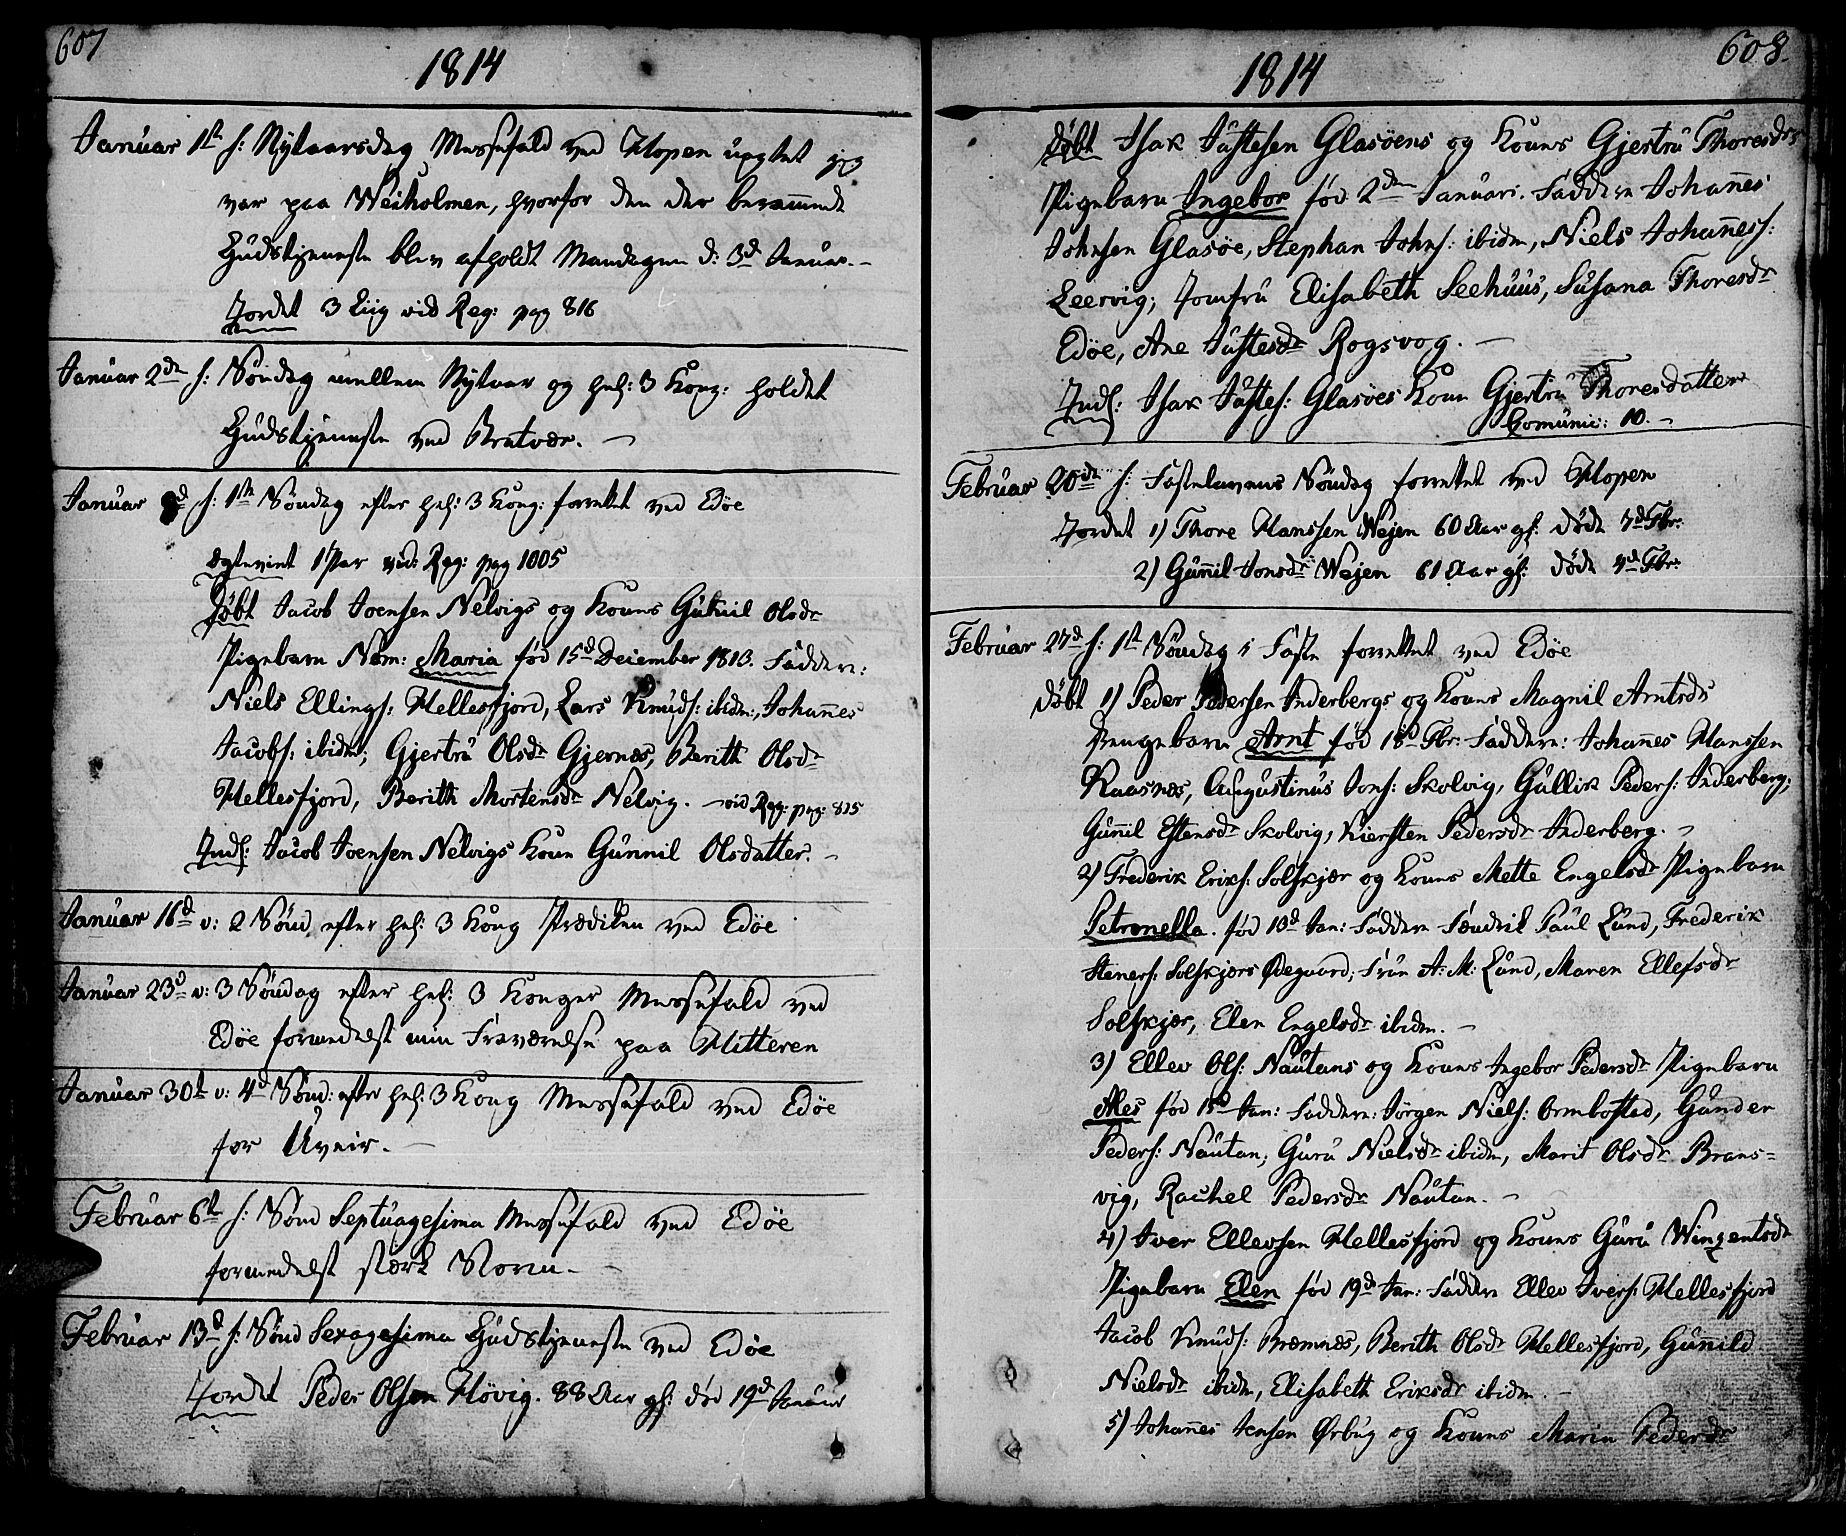 607
1814
Januar 1ste s: Nytaarsdag Messefald ved Hopen uagtet jeg
var paa Weiholmen, hvorfor den der berammede
Gudstjeneste blev afholdt Mandagen d: 3d Januar. -
Jordet 3 Liig vid Reg: pag 816
Januar 2den s: Søndag mellem Nytaar og hel: 3 Kong: holdet
Gudstjeneste ved Bratvær. -
Januar 9d s: 1ste Søndag efter hel: 3 Kong: forrettet ved Edöe
Egteviet 1 Par vid: Reg: pag 1005
Døbt Jacob Joensen Nelvigs og Kones Gunnil Olsdr
Pigebarn Nom: Maria fød 15d December 1813. Faddere:
Niels Ellings: Hellesfjord, Lars Knuds: ibidm:, Johannes
Jacobs: ibidm; Gjertru Olsdr Gjernæs, Berith Olsdr
Hellesfjord, Berith Mortensdr Nelvig. - vid Reg: pag: 815
Indl: Jacob Joensen Nelvigs Kone Gunnil Olsdatter. -
Januar 16d v: 2 Sønd efter hel: 3 Kong Prædiken ved Edöe
Januar 23d v: 3 Søndag efter hel: 3 Konger Messefald ved
Edöe formedelst min Fraværelse paa Hitteren
Januar 30te v: 4d Sønd: efter hel: 3 Kong Messefald ved Edöe
for Uveir. -
Februar 6te s: Sønd Septuagesima Messefald ved Edöe
formedelst stærk Storm. -
Februar 13d s: Sønd Sexagesima Gudstjeneste ved Edöe
Jordet Peder Olsen Høvig. 88 Aar gl: død 19d Januar
608.
1814
Døbt Isak Justesen Glasöens og Kones Gjertru Thoresdrs
Pigebarn Ingebor fød 2den Januari. Faddere Johannes
Johnsen Glasöe, Stephan Johns: ibidm, Niels Johanness:
Leervig; Jomfru Elisabeth Seehuus, Susana Thoresdr
Edöe, Ane Justesdr Rogsvog. -
Indl: Isak Justes: Glasöes Kone Gjertru Thoresdatter
Comunic: 10. -
Februar 20de s: Fastelavens Søndag forrettet ved Hopen
Jordet 1) Thore Hanssen Wejen 60 Aar gl: døde 7d Fbr:
2) Gunnil Jonsdr Wejen 61 Aar gl: døde 4d Fbr:
Februar 27d s: 1ste Søndag i Faste forrettet ved Edöe
Døbt 1) Peder Pedersen Inderbergs og Kones Magnil Arntsdr
Drengebarn Arnt fød 18d Fbr: Faddere: Johannes Hanssen
Raasnæs, Augustinus Jons: Skolvig, Gullik Peders: Inderberg;
Gunnil Estensdr Skolvig, Kiersten Pedersdr Inderberg. -
2) Frederik Eriks: Solskjær og Kones Mette Engelsdr Pigebarn
Petronella. fød 10d Jan: Faddere Fændrik Paul Lund, Frederik
Steners: Solskjærs Ødegaard; Frue A: M: Lund, Maren Ellefsdr
Solskjær, Elen Engelsdr ibidm. -
3) Ellev Ols: Nautans og Kones Ingebor Pedersdr Pigebarn
Ales fød 15d Jan: Faddere: Jörgen Niels: Ormbosted, Gunder
Peders: Nautan; Guru Nielsdr ibidm, Marit Olsdr Brans-
vig, Rachel Pedersdr Nautan. -
4) Iver Ellevsen Hellesfjord og Kones Guru Winzentsdr
Pigebarn Elen fød 19de Jan: Faddere Ellev Ivers: Hellesfjord
Jacob Knuds: Bremnes, Berith Olsdr Hellesfjord, Gunild
Nielsdr ibidm, Elisabeth Eriksdr ibidm. -
5) Johannes Jensen Ørbug og Kones Maria Pedersdr